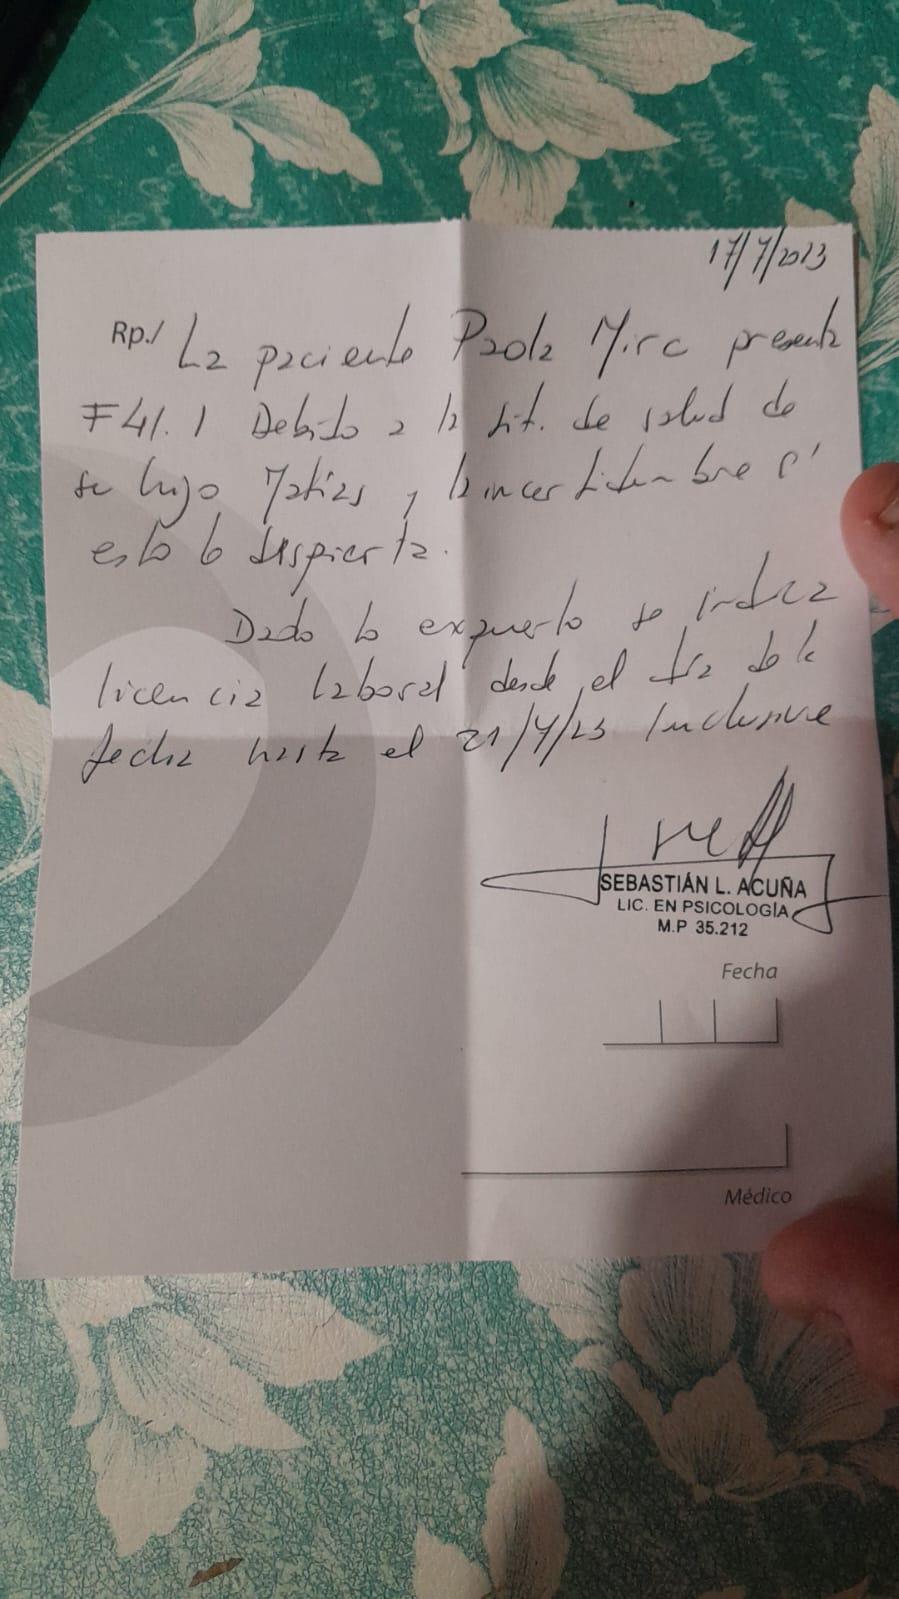 17/7/2023
Rp./ La paciente Paola Mirc presenta
F41.1 Debido a la sit. de salud de
su hijo Matias y la incertidumbre q'
esto le despierta.
Dado lo expuesto se indica
licencia laboral desde el día de la
fecha hasta el 21/7/23 Inclusive
SEBASTIÁN L. ACUÑA
LIC. EN PSICOLOGÍA
M.P 35.212
Fecha
Médico